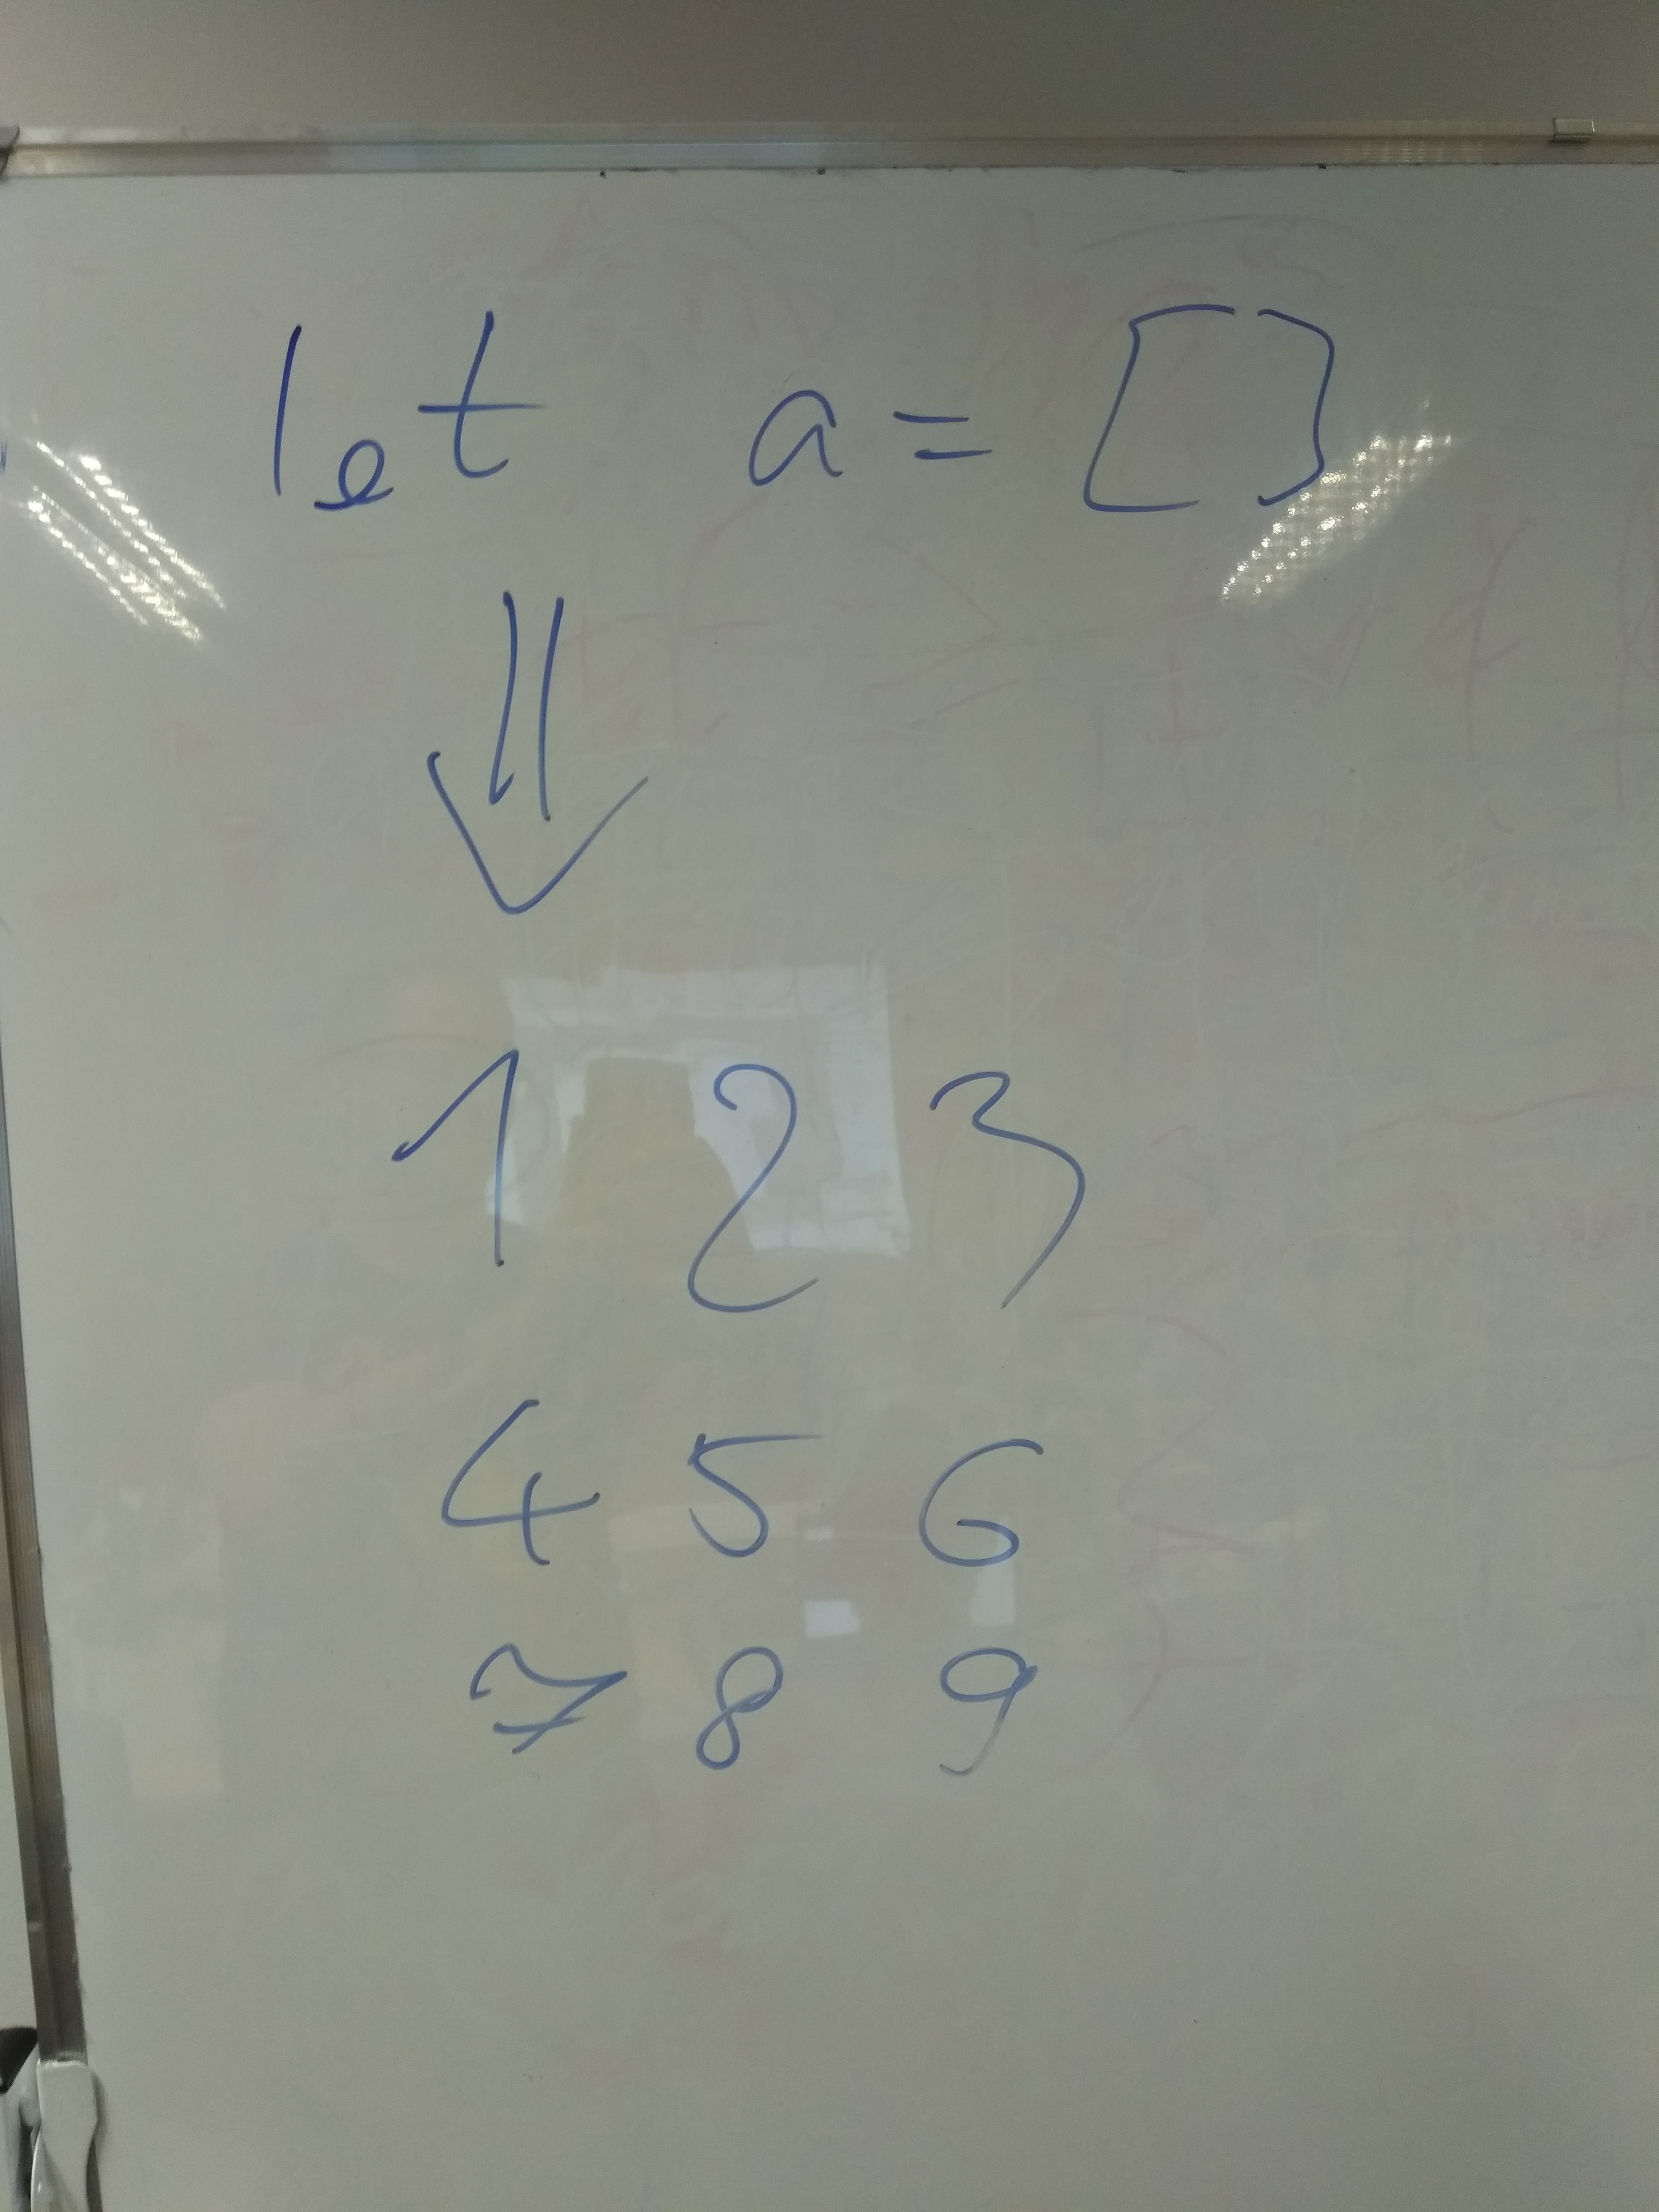 let a = []
⇓
1 2 3
4 5 6
7 8 9